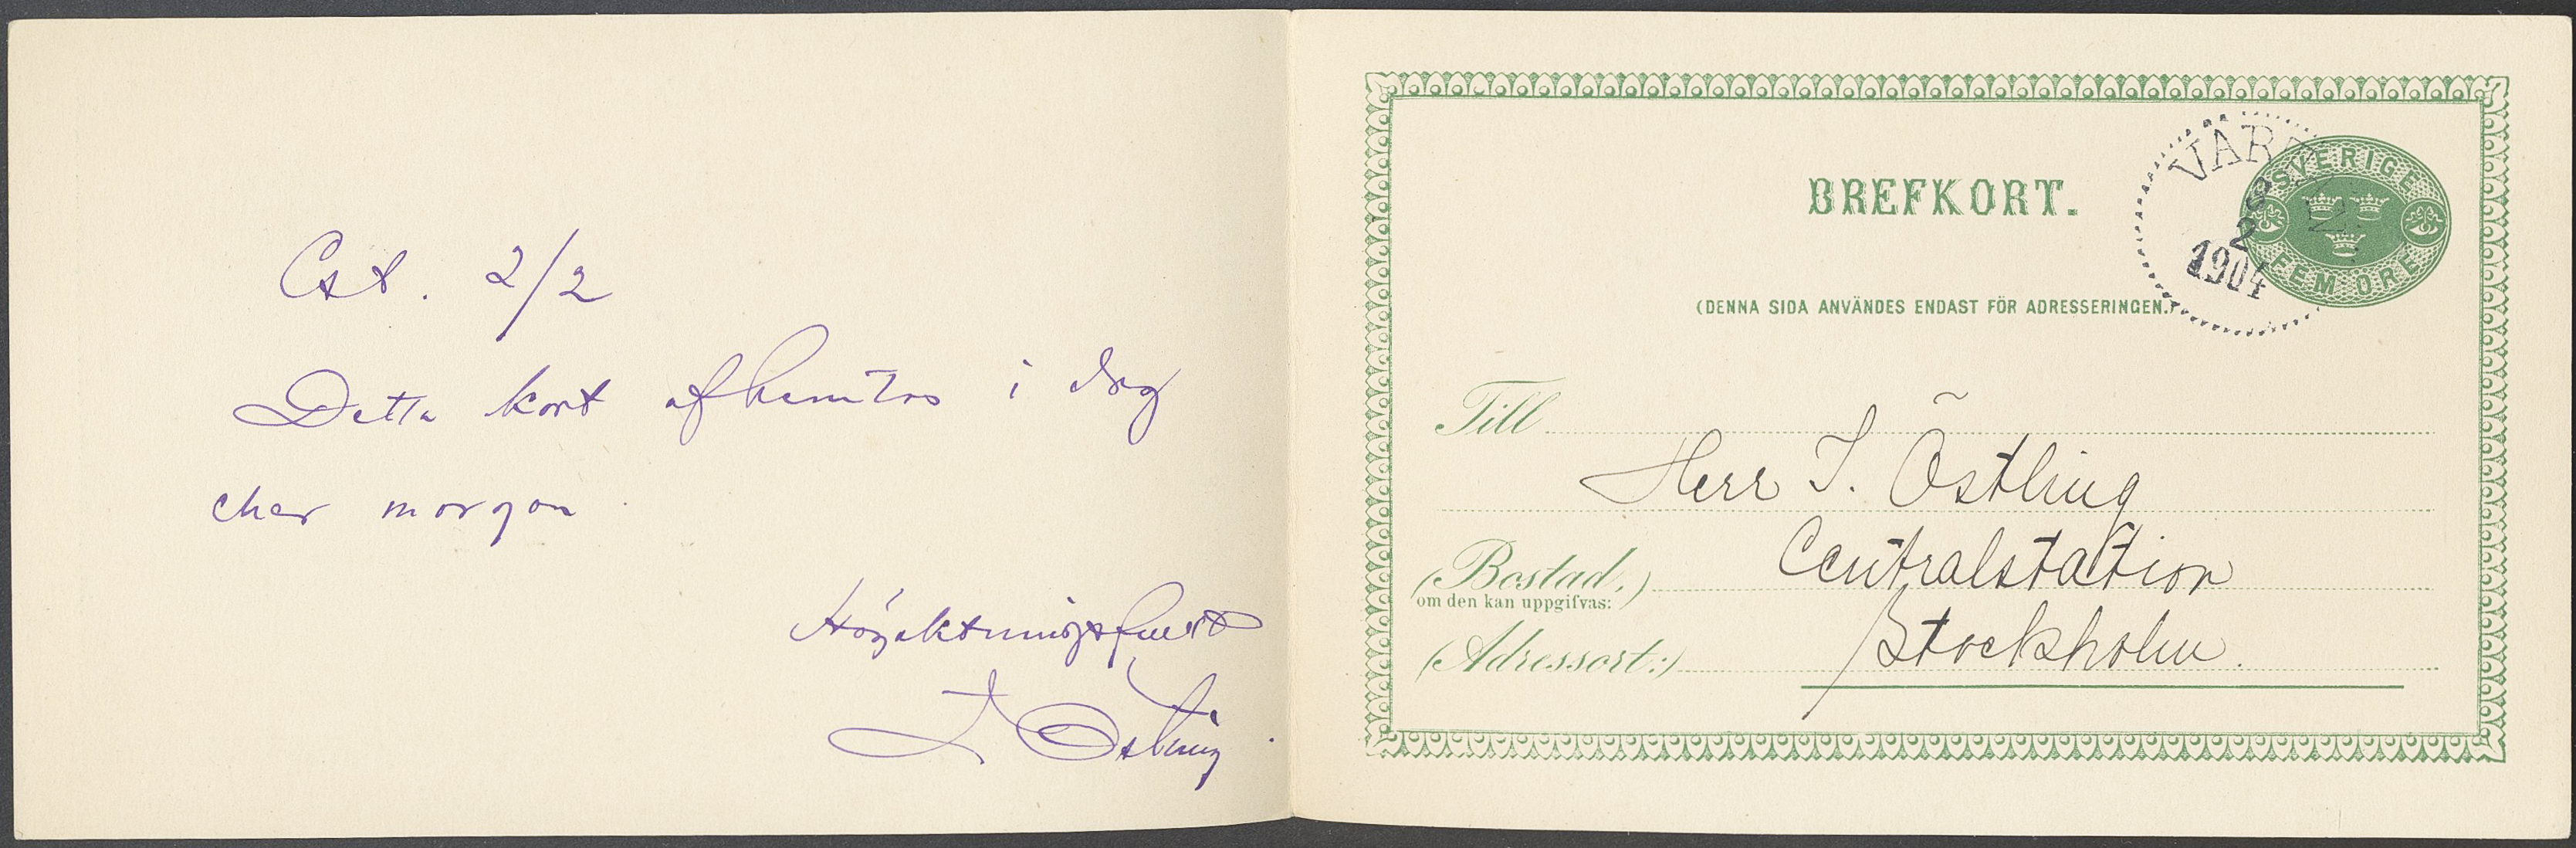 Cst. 2/2
Detta kort afhemtas i dag
eller morgon.
Högaktningsfullt
J Östling
BREFKORT.
SVERIGE
FEM ÖRE
2
1904
(DENNA SIDA ANVÄNDES ENDAST FÖR ADRESSERINGEN.)
Till
Herr J. Östling
(Bostad,)
om den kan uppgifvas:
Centralstation
(Adressort:)
Stockholm.